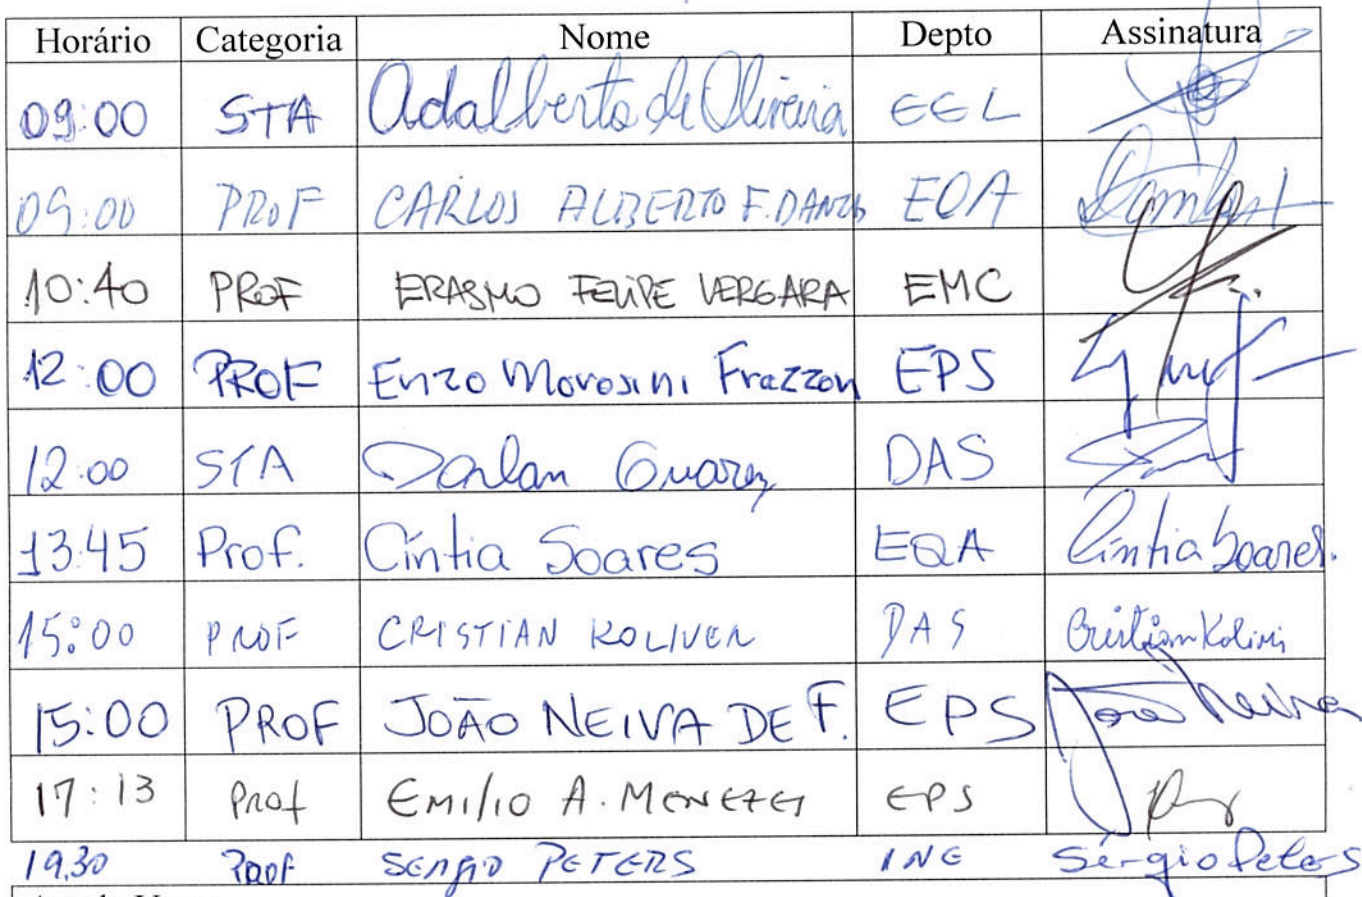 Horário Categoria Nome Depto Assinatura
09:00 STA Adalberto de Oliveira EEL
09:00 PROF CARLOS ALBERTO F. EQA
10:40 PROF ERASMO FELIPE VERGARA EMC
12:00 PROF Enzo Morosini Frazzon EPS
12:00 STA Darlan DAS
13:45 Prof. Cíntia Soares EQA Cíntia Soares.
15:00 PROF CRISTIAN KOLIVER DAS Cristian
15:00 PROF JOÃO NEIVA DE F. EPS João Neiva
17:13 Prof EMílio A. MENEZES EPS
19,30 Prof SERGIO PETERS INE Sérgio Peters